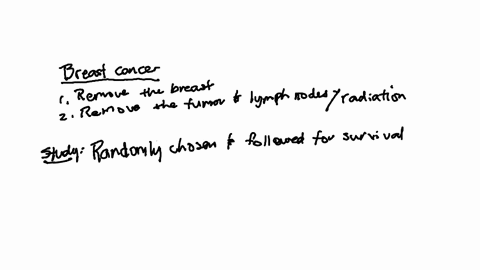 Breast cancer
1. Remove the breast
2. Remove the tumor & lymph nodes/radiation
Study: Randomly chosen & followed for survival